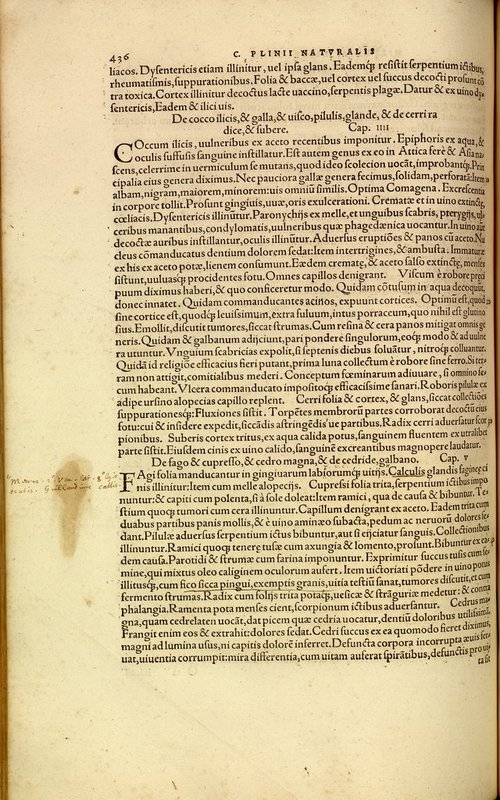 436
C. PLINII NATVRALIS
liacos. Dysentericis etiam illinitur, uel ipsa glans. Eademq; resistit serpentium ictibus,
rheumatismis, suppurationibus. Folia & baccæ, uel cortex uel succus decocti prosunt cō
tra toxica. Cortex illinitur decoctus lacte uaccino, serpentis plagæ. Datur & ex uino dy
sentericis, Eadem & ilici uis.
De cocco ilicis, & galla, & uisco, pilulis, glande, & de cerri ra
dice, & subere. Cap. IIII
COccum ilicis, uulneribus ex aceto recentibus imponitur. Epiphoris ex aqua, &
oculis suffusis sanguine instillatur. Est autem genus ex eo in Attica ferè & Asia na
scens, celerrime in uermiculum se mutans, quod ideo scolecion uocāt, improbantq;. Prin
cipalia eius genera diximus. Nec pauciora gallæ genera fecimus, solidam, perforatā: item
albam, nigram, maiorem, minorem: uis omniū similis. Optima Comagena. Excrescentia
in corpore tollit. Prosunt gingiuis, uuæ, oris exulcerationi. Crematæ et in uino extinctæ,
cœliacis. Dysentericis illinūtur. Paronychijs ex melle, et unguibus scabris, pterygijs, ul
ceribus manantibus, condylomatis, uulneribus quæ phagedænica uocantur. In uino aūt
decoctæ auribus instillantur, oculis illinūtur. Aduersus eruptiōes & panos cū aceto. Nu
cleus cōmanducatus dentium dolorem sedat: Item intertrigines, & ambusta. Immaturæ
ex his ex aceto potæ, lienem consumunt. Eædem crematæ, & aceto salso extinctæ, menses
sistunt, uuluasq; procidentes fotu. Omnes capillos denigrant. Viscum è robore præci
puum diximus haberi, & quo conficeretur modo. Quidam cōtusum in aqua decoquūt,
donec innatet. Quidam commanducantes acinos, expuunt cortices. Optimū est, quod
sine cortice est, quodq; leuissimum, extra fuluum, intus porraceum, quo nihil est glutino
sius. Emollit, discutit tumores, siccat strumas. Cum resina & cera panos mitigat omnis ge
neris. Quidam & galbanum adijciunt, pari pondere singulorum, eoq; modo & ad uulne
ra utuntur. Vnguium scabricias expolit, si septenis diebus soluātur, nitroq; colluantur.
Quidā id religiōe efficacius fieri putant, prima luna collectum è robore sine ferro. Si ter
ram non attigit, comitialibus mederi. Conceptum fœminarum adiuuare, si omnino se
cum habeant. Vlcera commanducato impositoq; efficacissime sanari. Roboris pilulæ ex
adipe ursino alopecias capillo replent. Cerri folia & cortex, & glans, siccat collectiōes
suppurationesq;: Fluxiones sistit. Torpētes membrorū partes corroborat decoctū eius
fotu: cui & insidere expedit, siccādis astringēdis'ue partibus. Radix cerri aduersatur scor
pionibus. Suberis cortex tritus, ex aqua calida potus, sanguinem fluentem ex utralibet
parte sistit. Eiusdem cinis ex uino calido, sanguinē excreantibus magnopere laudatur.
De fago & cupresso, & cedro magna, & de cedride, galbano. Cap. V
FAgi folia manducantur in gingiuarum laborumq; uitijs. Calculis glandis fagineę ci
nis illinitur: Item cum melle alopecijs. Cupressi folia trita, serpentium ictibus impo
nuntur: & capiti cum polenta, si à sole doleat: Item ramici, qua de causa & bibuntur. Te
stium quoq; tumori cum cera illinuntur. Capillum denigrant ex aceto. Eadem trita cum
duabus partibus panis mollis, & è uino amineæo subacta, pedum ac neruorū dolores se
dant. Pilulæ aduersus serpentium ictus bibuntur, aut si eijciatur sanguis. Collectionibus
illinuntur. Ramici quoq; tenere tusæ cum axungia & lomento, prosunt. Bibuntur ex ea
dem causa. Parotidi & strumæ cum farina imponuntur. Exprimitur succus tusis cum se
mine, qui mixtus oleo caliginem oculorum aufert. Item uictoriati pōdere in uino potus
illitusq;, cum fico sicca pingui, exemptis granis, uitia testiū sanat, tumores discutit, et cum
fermento strumas. Radix cum folijs trita potaq;, uesicæ & strāguriæ medetur: & contra
phalangia. Ramenta pota menses cient, scorpionum ictibus aduersantur. Cedrus ma
gna, quam cedrelaten uocāt, dat picem quæ cedria uocatur, dentiū doloribus utilissimā.
Frangit enim eos & extrahit: dolores sedat. Cedri succus ex ea quomodo fieret diximus,
magni ad lumina usus, ni capitis dolorē inferret. Defuncta corpora incorrupta æuis ser
uat, uiuentia corrumpit: mira differentia, cum uitam auferat spirātibus, defunctis pro ui
ta sit